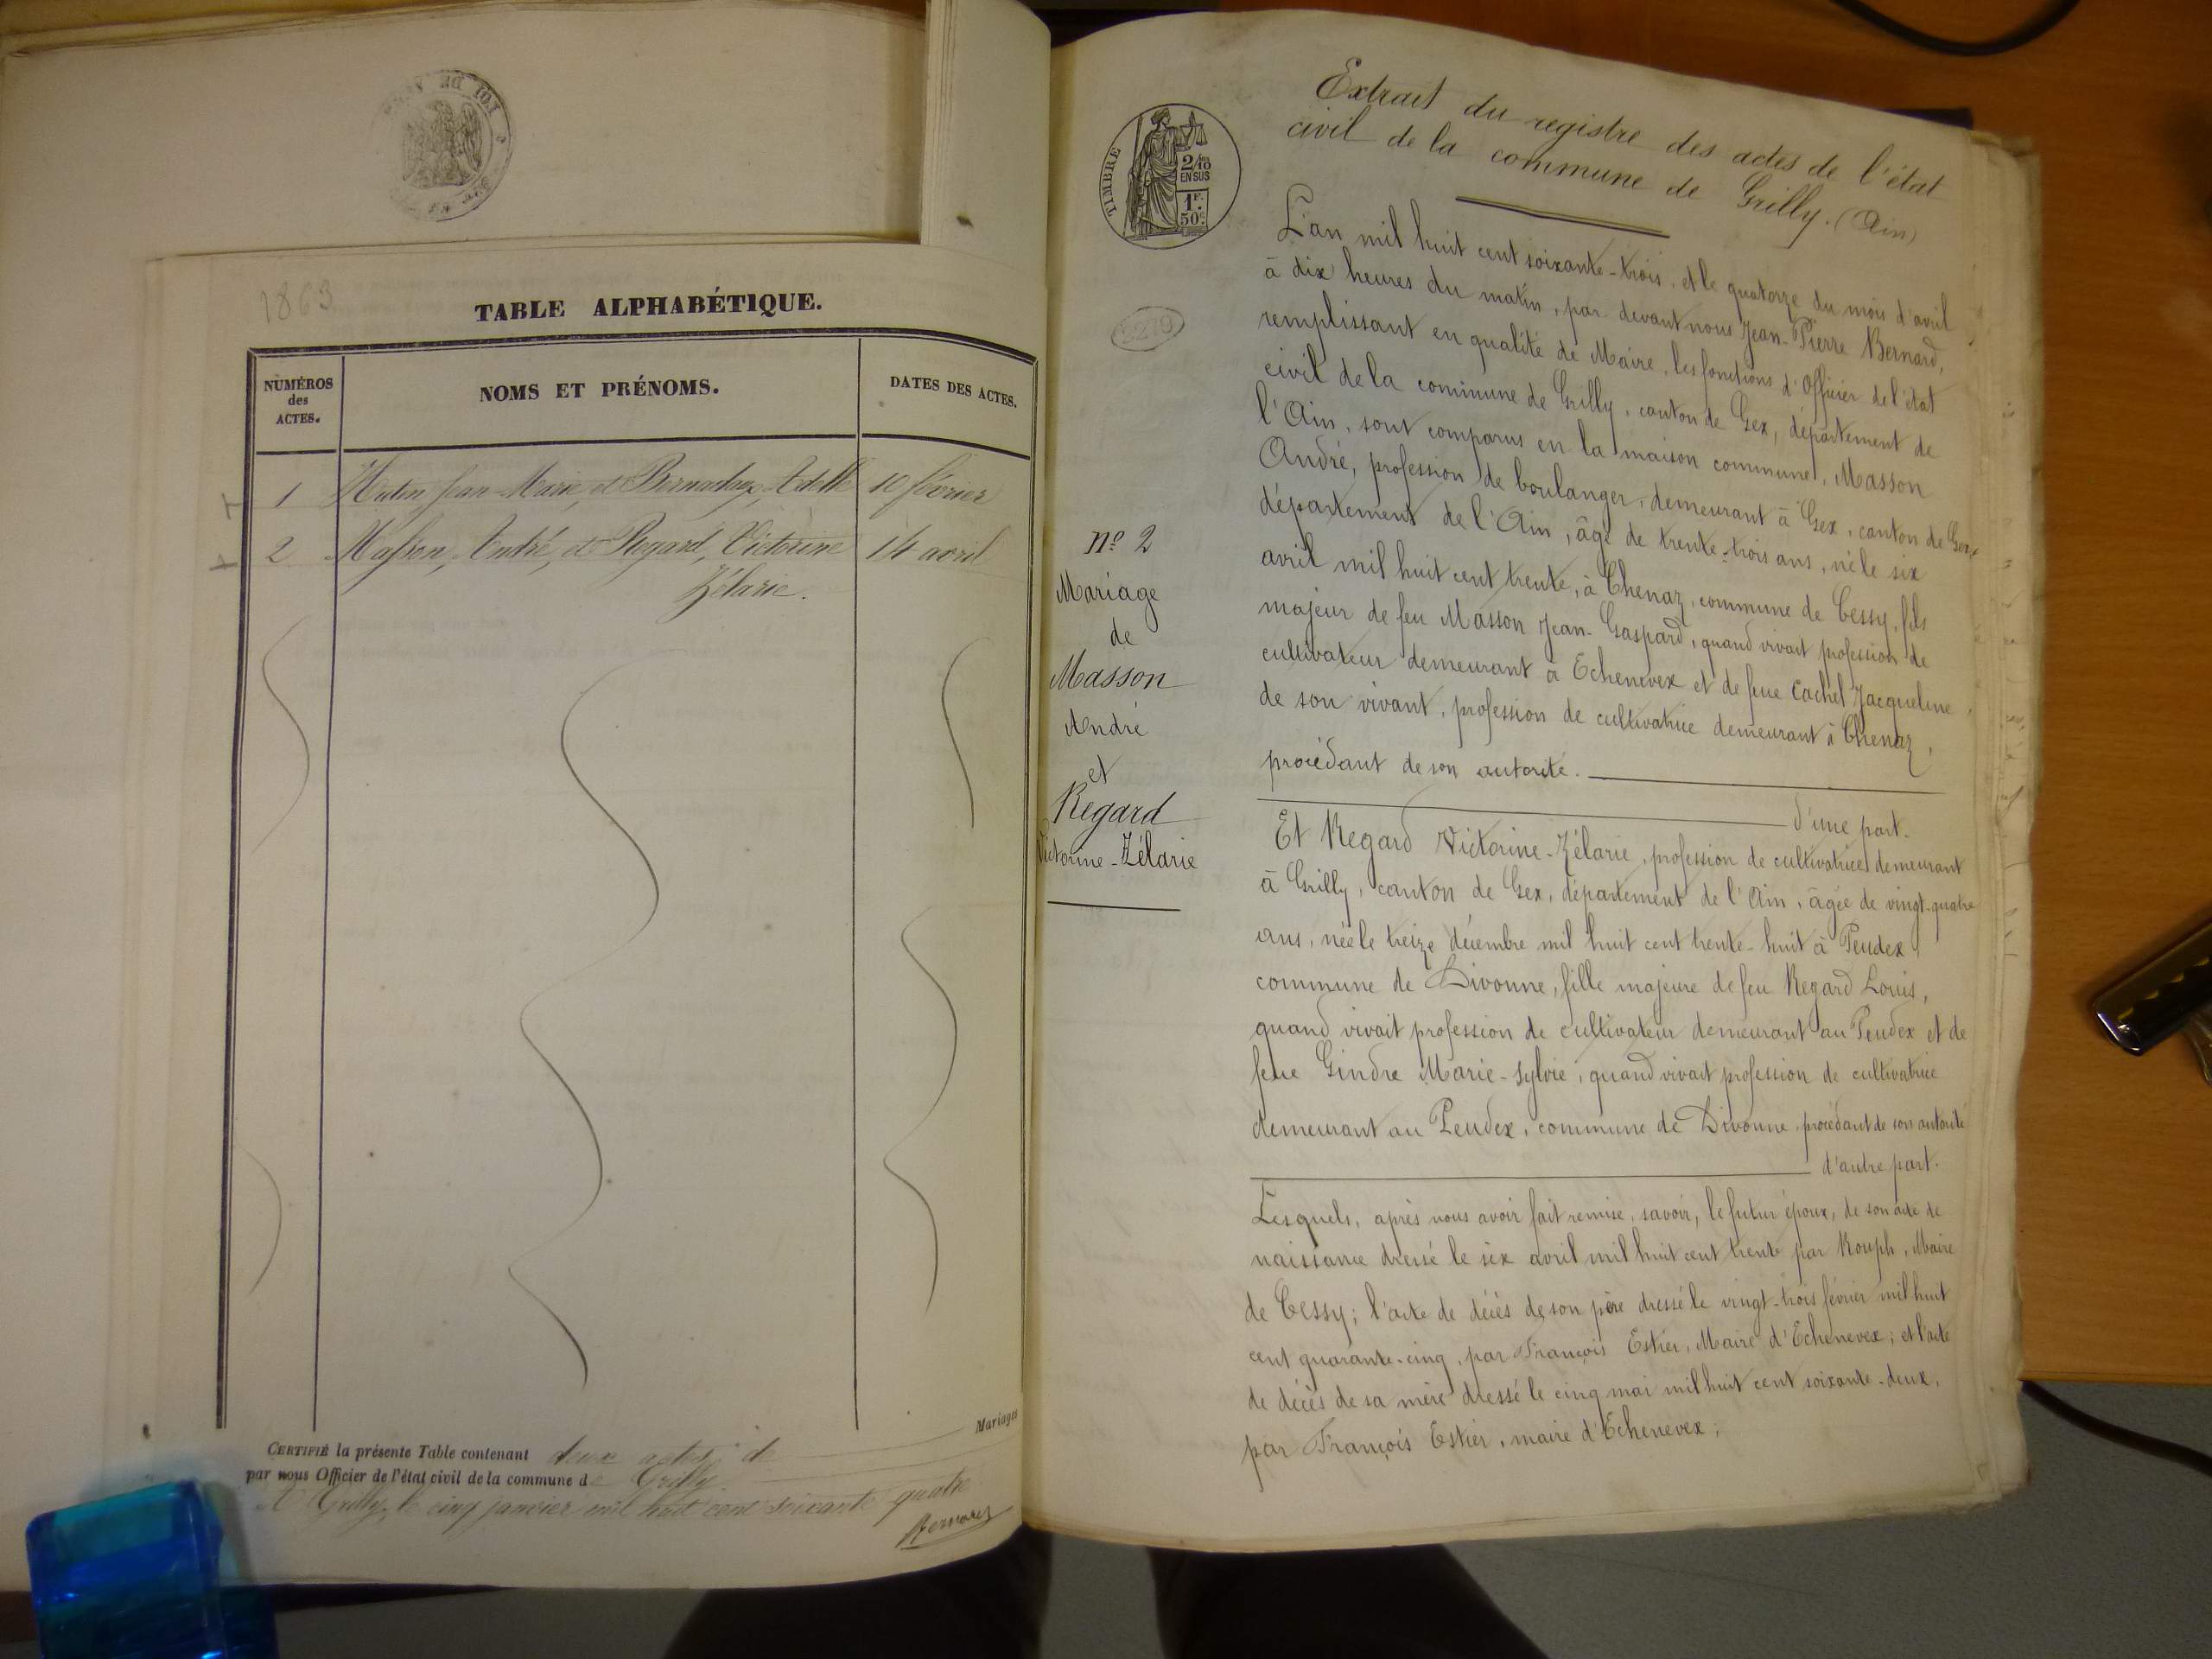 1863
TABLE ALPHABÉTIQUE.
NUMÉROS
des
ACTES.
NOMS ET PRÉNOMS.
DATES DES ACTES.
1 Jean-Marie, et Adelle 10 février
2 Masson, André, et Regard, Victorine 14 avril
Zélarie.
Mariages
CERTIFIÉ la présente Table contenant deux actes de
par nous Officier de l'état civil de la commune de Grilly.
A Grilly, le cinq janvier mil huit cent soixante quatre
Bernard
TIMBRE
2/10
EN SUS
1F.
50c.
Extrait du registre des actes de l'état
civil de la commune de Grilly. (Ain)
nº 2
Mariage
de
Masson
André
et
Regard
Victorine-Zélarie
L'an mil huit cent soixante-trois, et le quatorze du mois d'avril
à dix heures du matin, par devant nous Jean-Pierre Bernard,
remplissant en qualité de Maire, les fonctions d'Officier de l'état
civil de la commune de Grilly, canton de Gex, département de
l'Ain, sont comparus en la maison commune, Masson
André, profession de boulanger, demeurant à Gex, canton de Gex,
département de l'Ain, âgé de trente-trois ans, né le six
avril mil huit cent trente, à Chenaz, commune de Cessy, fils
majeur de feu Masson Jean-Gaspard, quand vivait profession de
cultivateur demeurant à Echenevex et de feue Cachel Jacqueline,
de son vivant, profession de cultivatrice demeurant à Chenaz,
procédant de son autorité.
d'une part.
Et Regard Victorine-Zélarie, profession de cultivatrice demeurant
à Grilly, canton de Gex, département de l'Ain, âgée de vingt-quatre
ans, née le treize décembre mil huit cent trente-huit à Peudex,
commune de Divonne, fille majeure de feu Regard Louis,
quand vivait profession de cultivateur demeurant au Peudex et de
feue Gindre Marie-Sylvie, quand vivait profession de cultivatrice
demeurant au Peudex, commune de Divonne, procédant de son autorité
d'autre part.
Lesquels, après nous avoir fait remise, savoir, le futur époux, de son acte de
naissance dressé le six avril mil huit cent trente par Rouph, Maire
de Cessy; l'acte de décès de son père dressé le vingt-trois février mil huit
cent quarante-cinq, par François Estier, Maire d'Echenevex; et l'acte
de décès de sa mère dressé le cinq mai mil huit cent soixante-deux,
par François Estier, maire d'Echenevex;